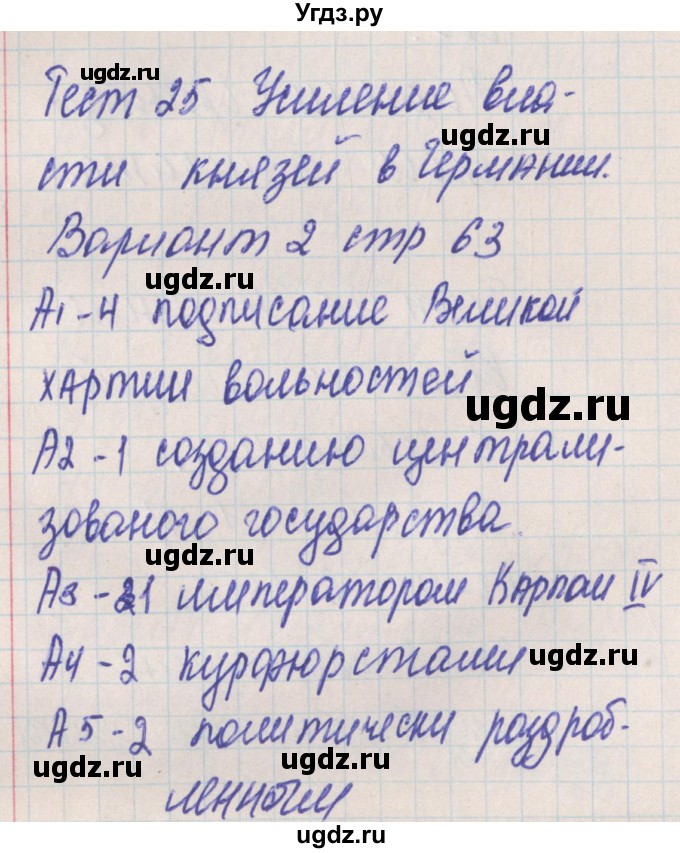 Угдз.ру
ugdz.ru
Тест 25 Усиление вла-
ugdz.ru
сти князей в Германии.
ugdz.ru
Вариант 2 стр 63
ugdz.ru
А1-4 подписание Великой
хартии вольностей
ugdz.ru
А2-1 созданию централи-
ugdz.ru
зованого государства.
ugdz.ru
А3-1 императором Карлом IV
ugdz.ru
А4-2 курфюрстами
ugdz.ru
А5-2 политически раздроб-
ugdz.ru
ugdz.ru
ленным
ugdz.ru